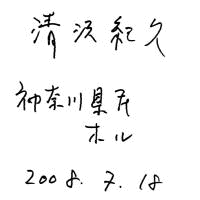 清沢紀久
神奈川県民
ホル
2008.7.18